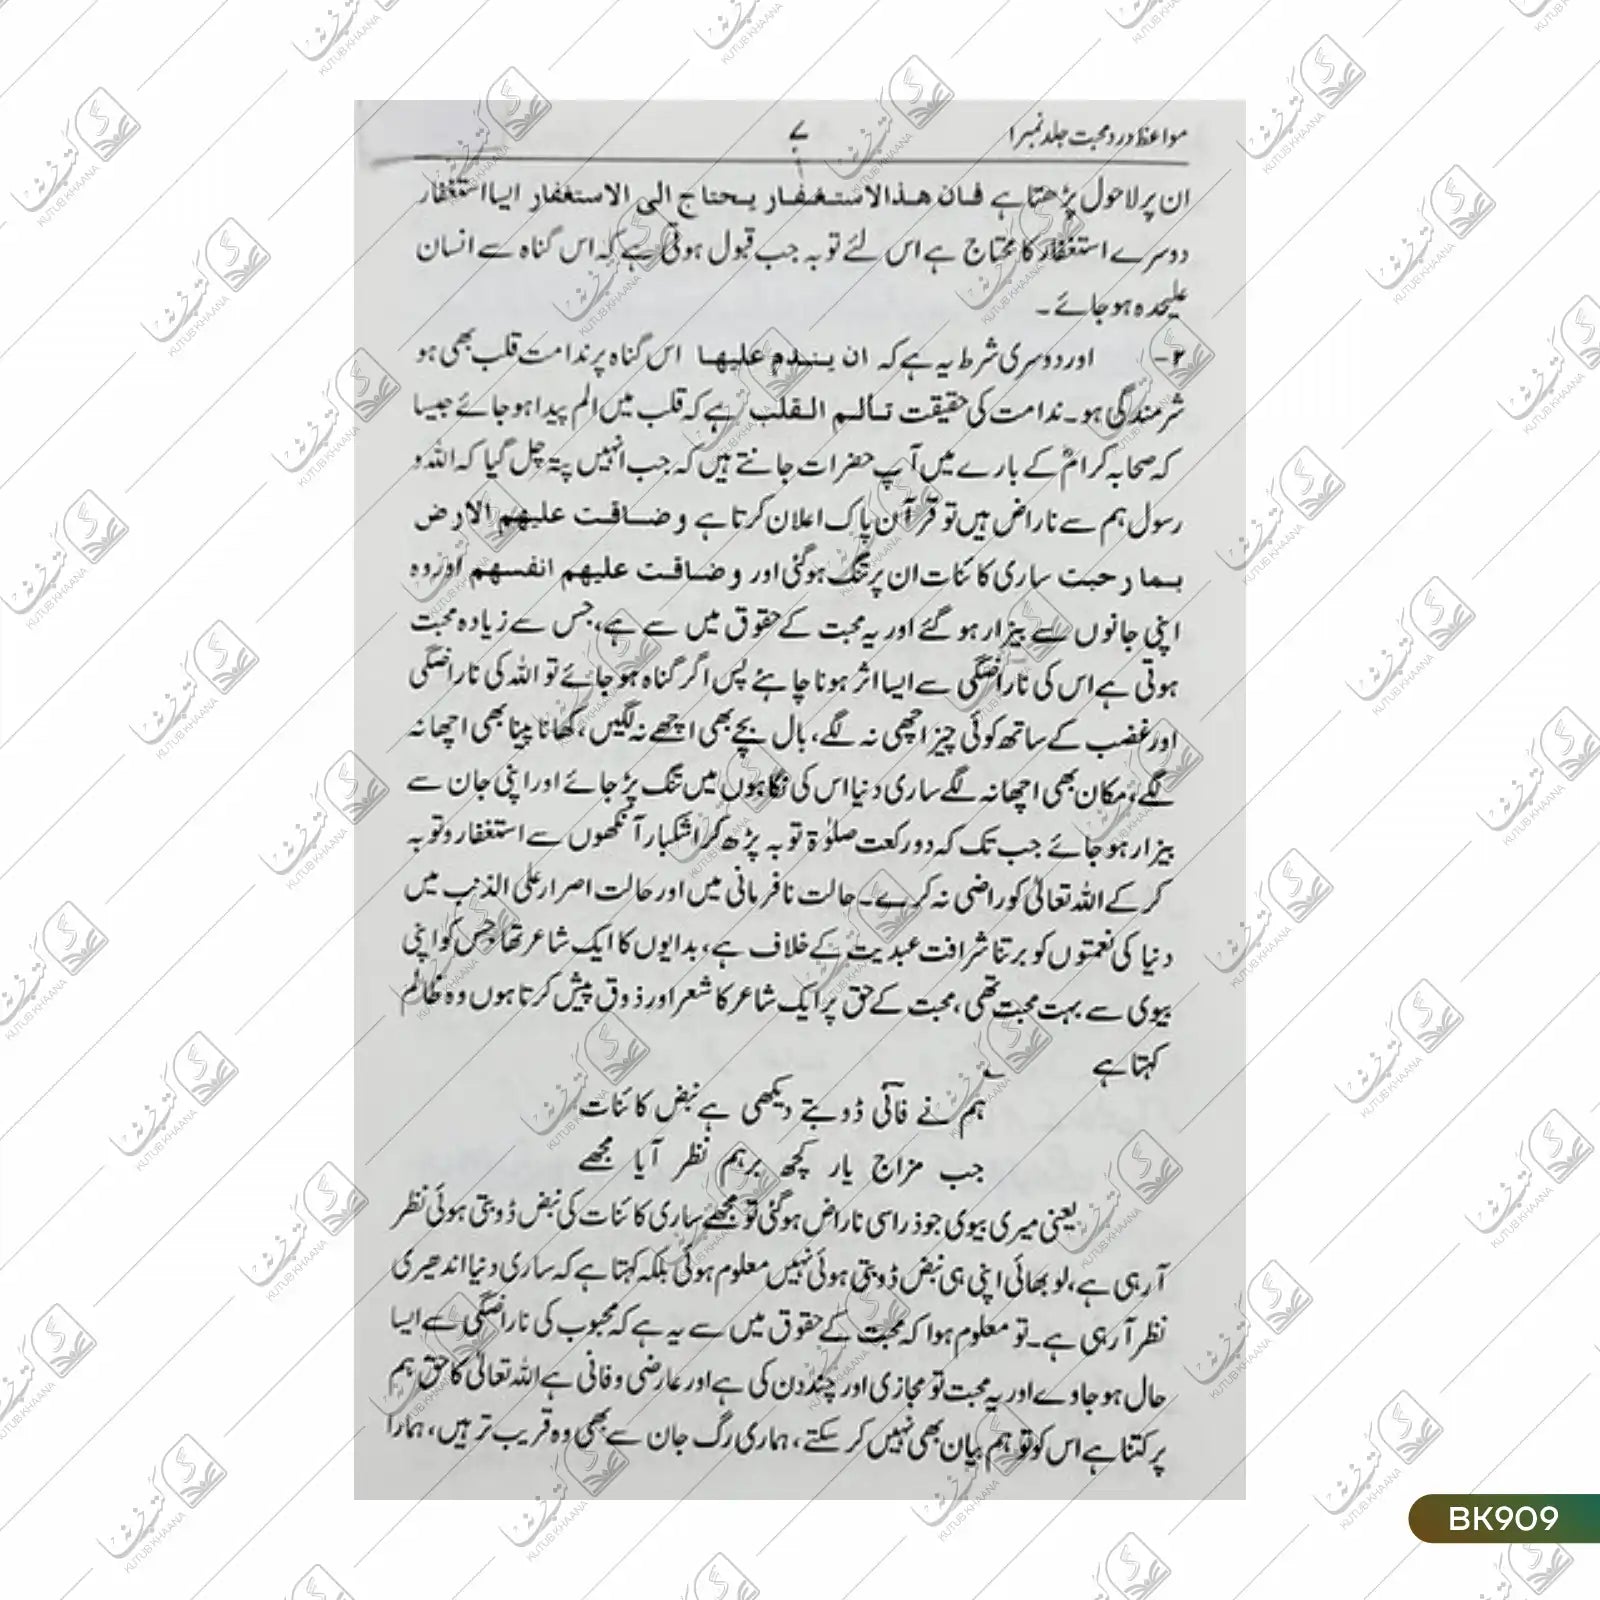 مواعظ درد محبت جلد نمبر ۱
۷
ان پر لاحول پڑھتا ہے فان هذا الاستغفار يحتاج الى الاستغفار ایسا استغفار
دوسرے استغفار کا محتاج ہے اس لئے توبہ جب قبول ہوتی ہے کہ اس گناہ سے انسان
علیحدہ ہو جائے۔
۲- اور دوسری شرط یہ ہے کہ ان يندم عليها اس گناہ پر ندامت قلب بھی ہو
شرمندگی ہو۔ ندامت کی حقیقت تألم القلب ہے کہ قلب میں الم پیدا ہو جائے جیسا
کہ صحابہ کرامؓ کے بارے میں آپ حضرات جانتے ہیں کہ جب انہیں پتہ چل گیا کہ اللہ و
رسول ہم سے ناراض ہیں تو قرآن پاک اعلان کرتا ہے وضاقت عليهم الارض
بما رحبت ساری کائنات ان پر تنگ ہوگئی اور وضاقت عليهم انفسهم اور وہ
اپنی جانوں سے بیزار ہو گئے اور یہ محبت کے حقوق میں سے ہے، جس سے زیادہ محبت
ہوتی ہے اس کی ناراضگی سے ایسا اثر ہونا چاہئے پس اگر گناہ ہو جائے تو اللہ کی ناراضگی
اور غضب کے ساتھ کوئی چیز اچھی نہ لگے، بال بچے بھی اچھے نہ لگیں، کھانا پینا بھی اچھا نہ
لگے، مکان بھی اچھا نہ لگے ساری دنیا اس کی نگاہوں میں تنگ پڑ جائے اور اپنی جان سے
بیزار ہو جائے جب تک کہ دو رکعت صلوٰۃ توبہ پڑھ کر اشکبار آنکھوں سے استغفار و توبہ
کر کے اللہ تعالیٰ کو راضی نہ کرے۔ حالت نافرمانی میں اور حالت اصرار علی الذنب میں
دنیا کی نعمتوں کو برتنا شرافت عبدیت کے خلاف ہے، بدایوں کا ایک شاعر تھا جس کو اپنی
بیوی سے بہت محبت تھی، محبت کے حق پر ایک شاعر کا شعر اور ذوق پیش کرتا ہوں وہ ظالم
کہتا ہے ؎
ہم نے فانی ڈوبتے دیکھی ہے نبض کائنات
جب مزاج یار کچھ برہم نظر آیا مجھے
یعنی میری بیوی جو ذرا سی ناراض ہوگئی تو مجھے ساری کائنات کی نبض ڈوبتی ہوئی نظر
آ رہی ہے، لو بھائی اپنی ہی نبض ڈوبتی ہوئی نہیں معلوم ہوئی بلکہ کہتا ہے کہ ساری دنیا اندھیری
نظر آ رہی ہے۔ تو معلوم ہوا کہ محبت کے حقوق میں سے یہ ہے کہ محبوب کی ناراضگی سے ایسا
حال ہو جاوے اور یہ محبت تو مجازی اور چند دن کی ہے اور عارضی و فانی ہے اللہ تعالیٰ کا حق ہم
پر کتنا ہے اس کو تو ہم بیان بھی نہیں کر سکتے، ہماری رگ جان سے بھی وہ قریب تر ہیں، ہمارا
BK909
کتب خانہ
KUTUB KHAANA